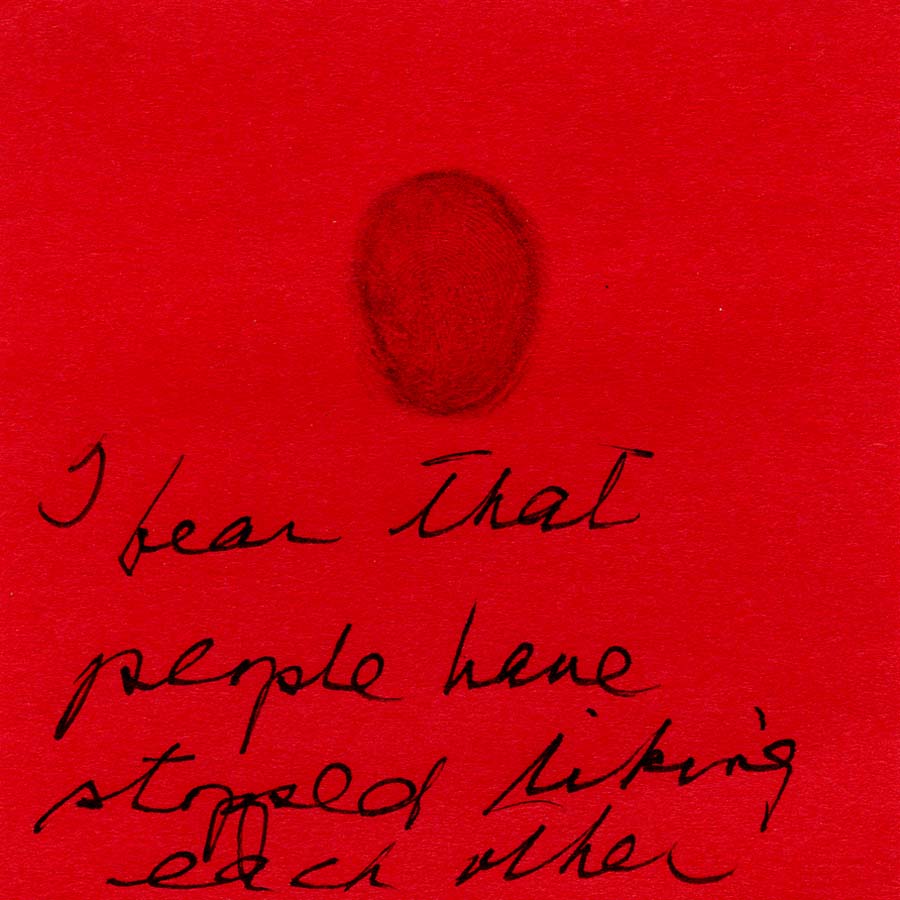 I fear that
people have
stopped liking
each other